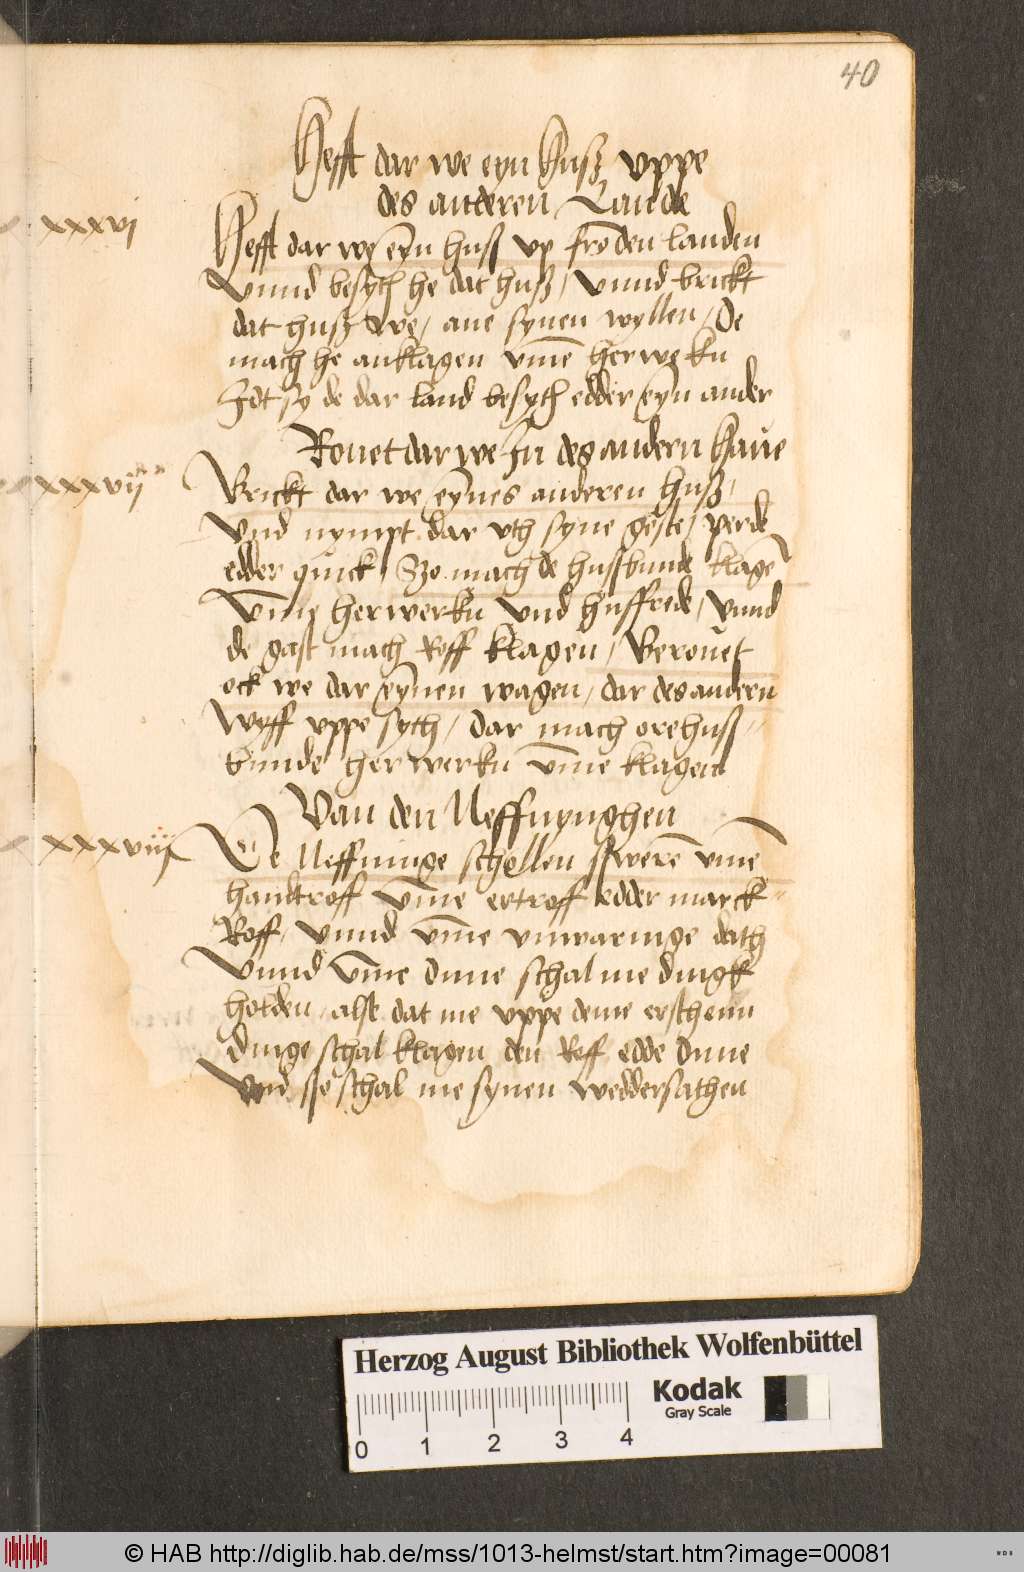 40
Hefft dar we eyn Husz vppe
des anderen Lande
xxxvi
Hefft dar we eyn husz vp frōden landen
Vnnd besyth he dat husz, vnnd brickt
dat husz we, ane synen wyllen, De
mach he anklagen vm̄e herwerkn
Idt sy de dar land besyth edder eyn ander
Rouet dar we In des andern Haue
xxxvij
Brickt dar we eynes anderen husz,
Vnd nympt dar vth syne geste, perde
edder quick, Szo mach de hussbunde klagē
Vm̄e herwerkn vnd husffrede, Vnnd
de gast mach Roff klagen, Berouet
ock we dar eynen wagen, dar des andern
Wyff vppe syth, dar mach ore huss-
bunde herwerkn vm̄e klagen
Van den Neffnynghen
xxxviij
De Neffninge schollen sweré vm̄e
handtroff vm̄e ertroff edder marck-
Roff, vnnd vm̄e vnwaringe dath
Vnnd vm̄e dune schal me dingk
holden, alse dat me vppe deme ersthenn
Dinge schal klagen den Roff edde dune
Vnd sse schal me synen weddersathen
Herzog August Bibliothek Wolfenbüttel
0 1 2 3 4
Kodak
Gray Scale
© HAB http://diglib.hab.de/mss/1013-helmst/start.htm?image=00081